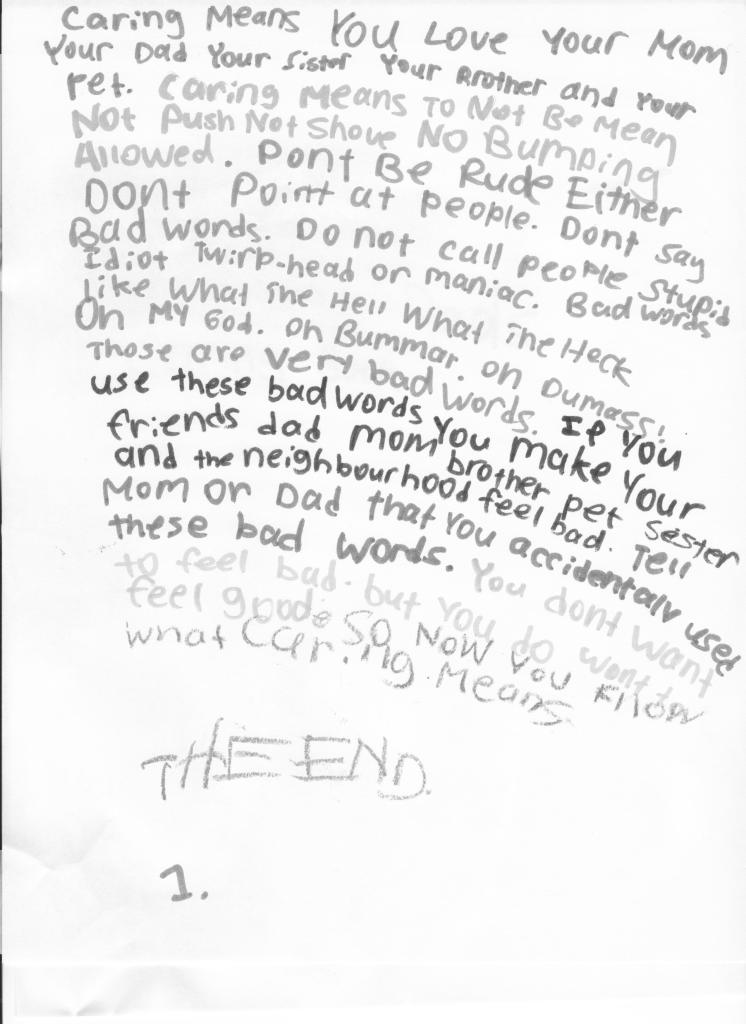 Caring Means You Love Your Mom
Your Dad Your Sister Your Brother and Your
Pet. Caring Means To Not Be Mean
Not Push Not Shove No Bumping
Allowed. Dont Be Rude Either
Dont Point at people. Dont say
Bad words. Do not call people stupid
Idiot Twirp-head or maniac. Bad words
Like What The Hell What The Heck
Oh My God. Oh Bummar. Oh Dumass!
Those are very bad words. If You
use these bad words You make Your
friends dad mom brother pet sester
and the neighbourhood feel bad. Tell
Mom Or Dad that You accidentaly used
these bad words. You dont want
to feel bad. but You do wont to
feel good. So Now You Know
what Caring Means
THE END.
1.